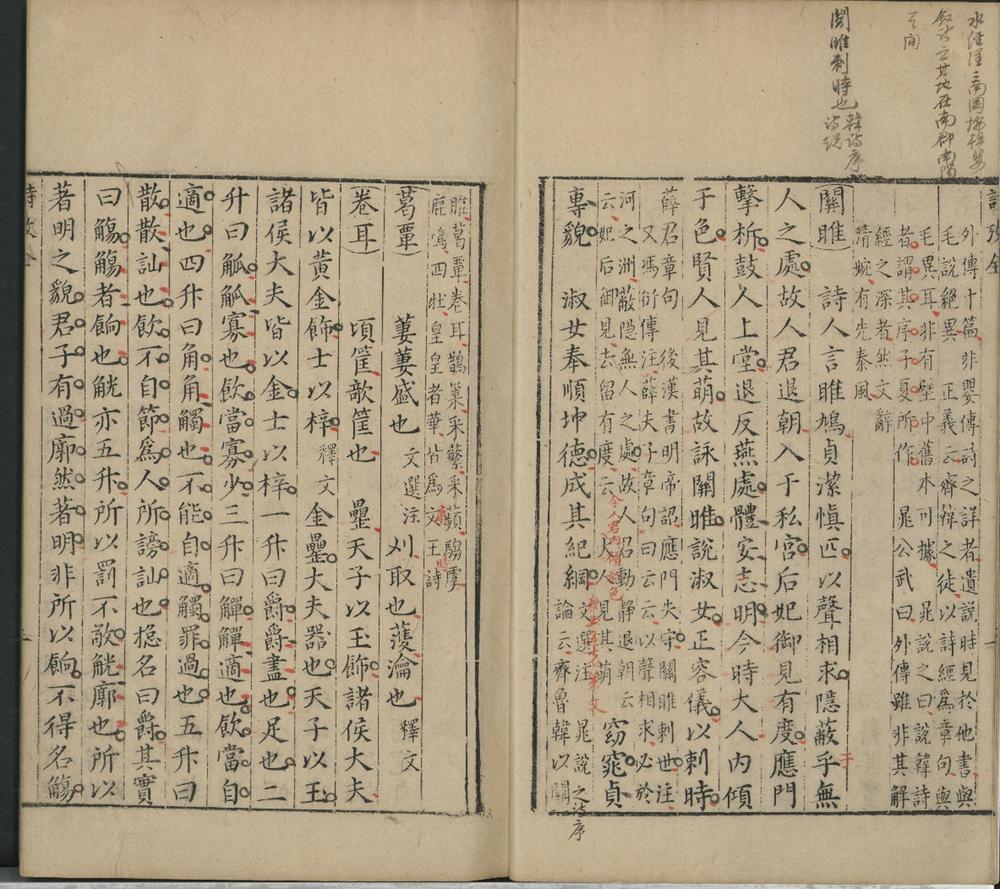 詩攷全
外傳十篇非嬰傳詩之詳者遺說時見於他書與
毛說絕異 正義云齊韓之徒以詩經爲章句與
毛異耳非有壁中舊本可據 晁說之曰說韓詩
者謂其序子夏所作 晁公武曰外傳雖非其解
經之深者然文辭
清婉有先秦風
關雎 詩人言雎鳩貞潔慎匹以聲相求隱蔽乎無
人之處故人君退朝入于私宮后妃御見有度應門
擊柝鼓人上堂退反燕處體安志明今時大人內傾
于色賢人見其萌故詠關雎說淑女正容儀以刺時
薛君章句 後漢書明帝詔應門失守關雎刺世注
又馮衍傳注薛夫子章句曰云云以聲相求必於
河之洲蔽隱無人之處故人君動靜退朝云
云妃后御見去留有度云人人見其萌
文選注 晁說之詩序
論云齊魯韓以關
窈窕貞
專貌 淑女奉順坤德成其紀綱
關雎刺時也 韓詩序
詩攷
雎葛覃卷耳鵲巢采蘩采蘋騶虞
鹿鳴四牡皇皇者華皆爲文王詩
葛覃 萋萋盛也 文選注 刈取也濩瀹也 釋文
卷耳 頃筐欹筐也 罍天子以玉飾諸侯大夫
皆以黃金飾士以梓 釋文 金罍大夫器也天子以玉
諸侯大夫皆以金士以梓一升曰爵爵盡也足也二
升曰觚觚寡也飲當寡少三升曰觶觶適也飲當自
適也四升曰角角觸也不能自適觸罪過也五升曰
散散訕也飲不自節爲人所謗訕也捴名曰爵其實
曰觴觴者餉也觥亦五升所以罰不敬觥廓也所以
著明之貌君子有過廓然著明非所以餉不得名觴